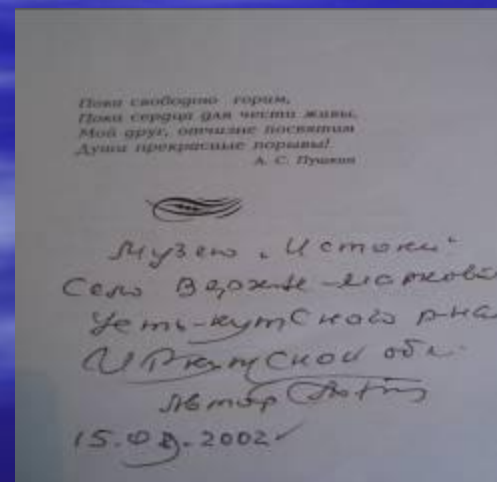 Пока свободою горим,
Пока сердца для чести живы,
Мой друг, отчизне посвятим
Души прекрасные порывы!
А. С. Пушкин
Музею „Истоки“
Село Верхне-марково
Усть-кутского р-на
Иркутской обл.
Автор
2002